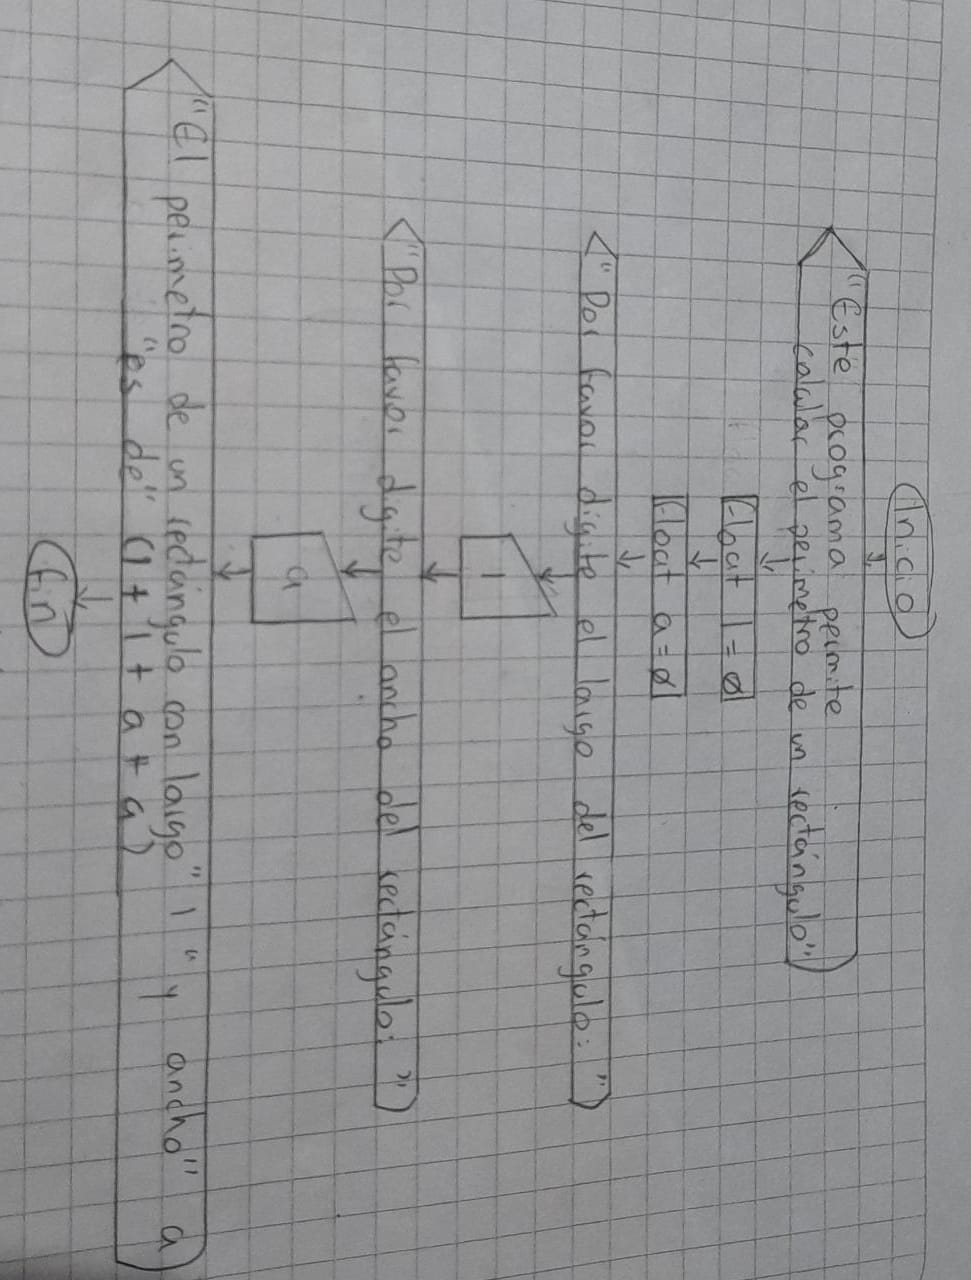 Inicio
"Este programa permite
calcular el perimetro de un rectángulo"
float l = 0
float a = 0
"Por favor digite el largo del rectángulo: "
l
"Por favor digite el ancho del rectángulo: "
a
"El perimetro de un rectángulo con largo" l "y ancho" a
"es de" (l + l + a + a)
fin